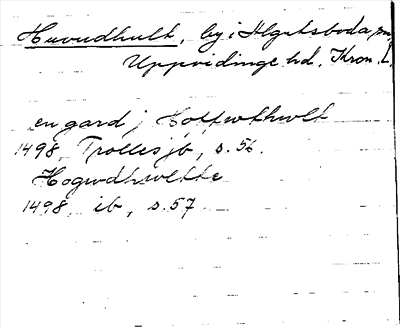 Huvudhult, by i Älgutsboda sn,
Uppvidinge hd. Kron. l.
en gard j Hoffwthwlt
1498, Trolles jb, s. 56.
Hogwdhwltte
1498, ib, s. 57